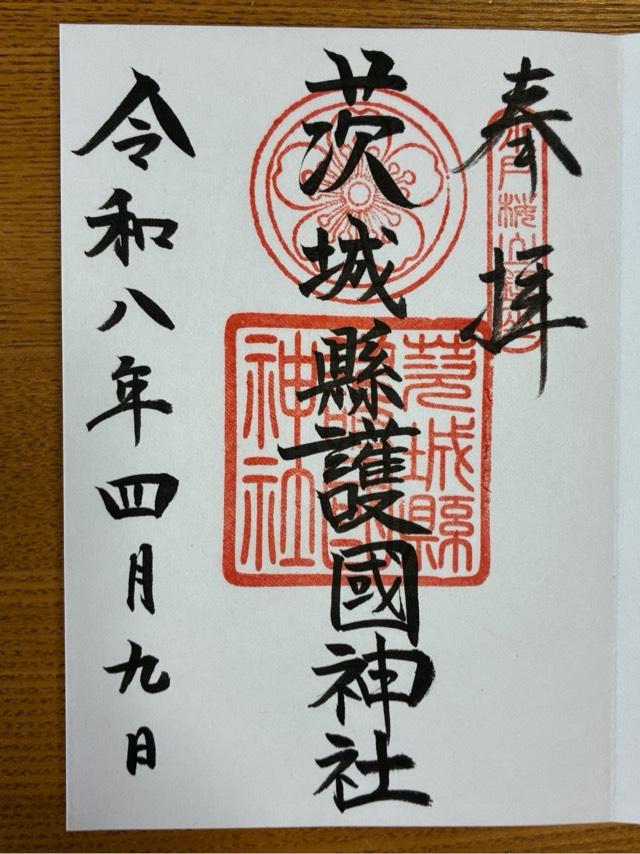 奉拝
茨城縣護國神社
茨城縣護國神社
令和八年四月九日